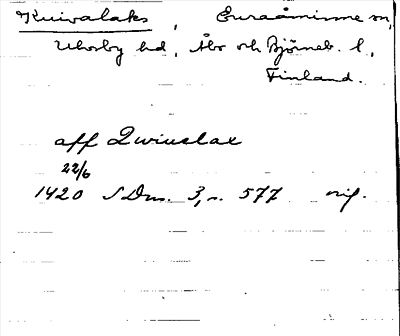 Kuivalaks, Euraåminne sn,
Ulvsby hd, Åbo och Björneb. l,
Finland.
aff Qwiuelax
22/6
1420 SDns. 3, s. 577 orig.